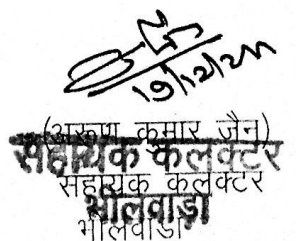 19/12/2011
(अरूण कुमार जैन)
सहायक कलक्टर
सहायक कलक्टर
भीलवाड़ा
भीलवाडा